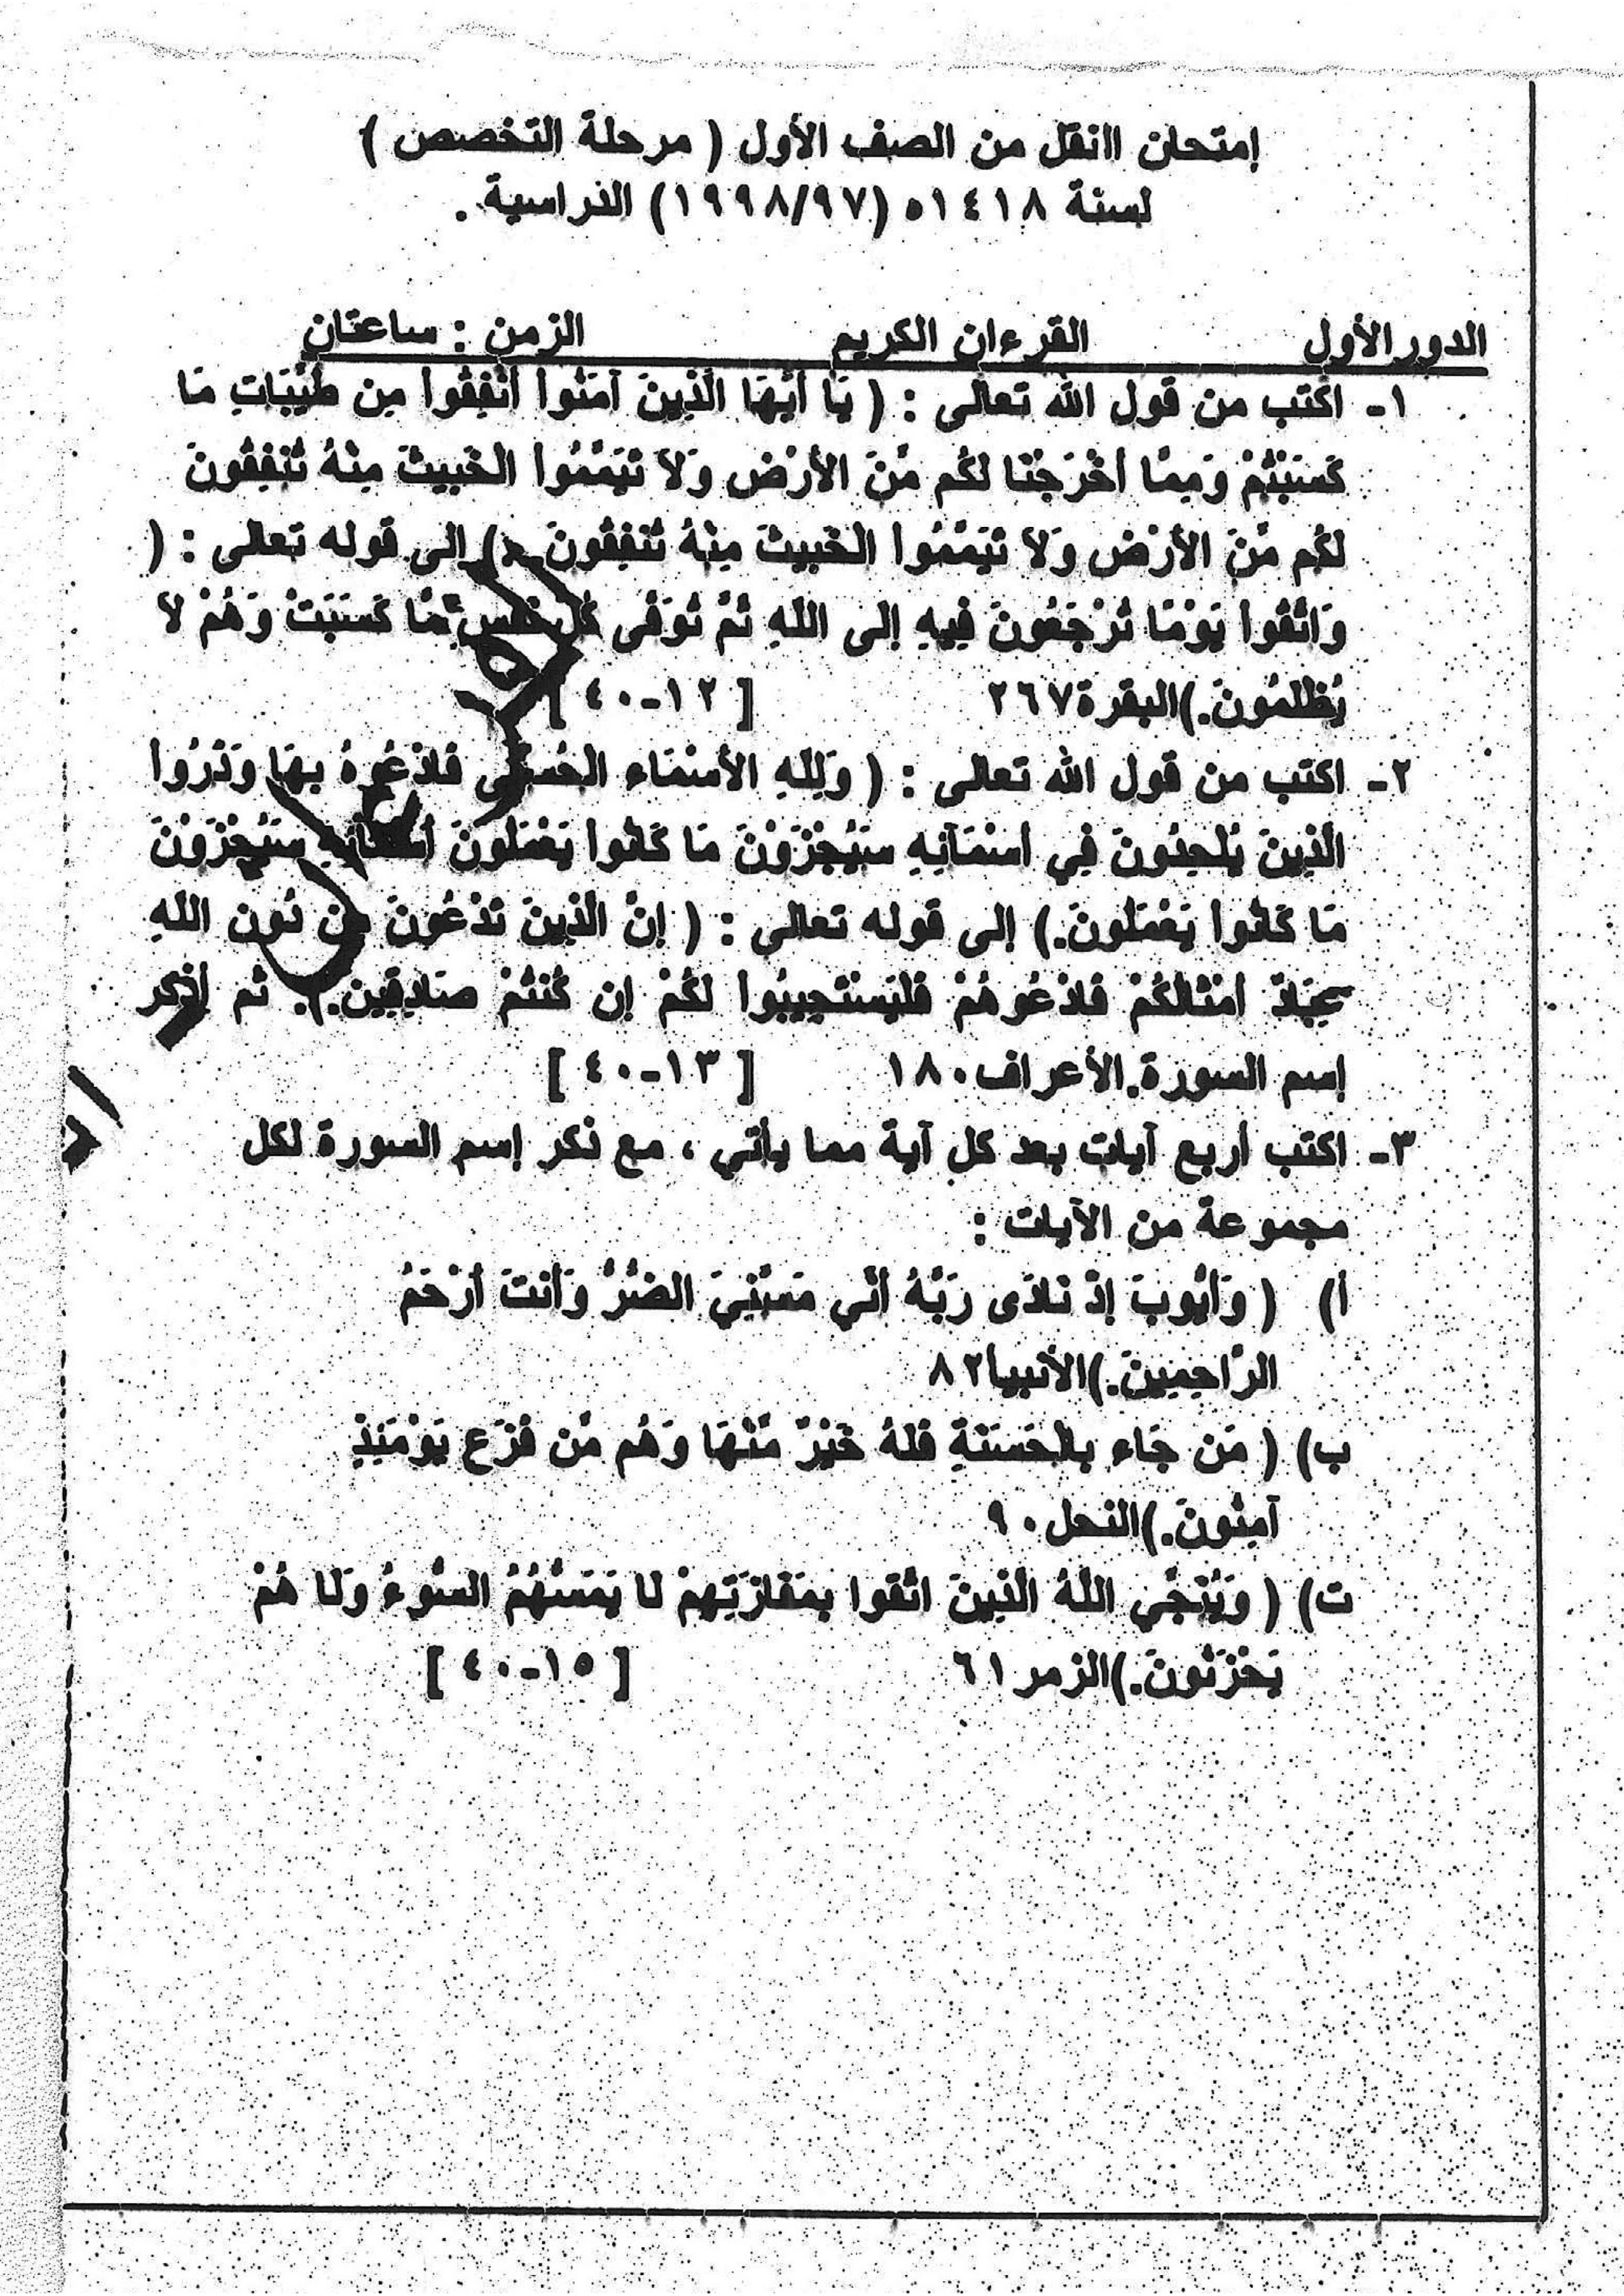 إمتحان اانقل من الصف الأول ( مرحلة التخصص )
لسنة ١٤١٨ه (١٩٩٨/٩٧) الدراسية .
الدور الأول القرءان الكريم الزمن : ساعتان
١- اكتب من قول الله تعالى : ( يَا أَيُّهَا الَّذِينَ آمَنُواْ أَنْفِقُواْ مِن طَيِّبَاتِ مَا
كَسَبْتُمْ وَمِمَّا أَخْرَجْنَا لَكُم مِّنَ الأَرْضِ وَلاَ تَيَمَّمُواْ الْخَبِيثَ مِنْهُ تُنفِقُونَ
لَكُم مِّنَ الأَرْضِ وَلاَ تَيَمَّمُواْ الْخَبِيثَ مِنْهُ تُنفِقُونَ .) إلى قوله تعالى : (
وَاتَّقُواْ يَوْمًا تُرْجَعُونَ فِيهِ إِلَى اللّهِ ثُمَّ تُوَفَّى كُلُّ نَفْسٍ مَّا كَسَبَتْ وَهُمْ لاَ
يُظْلَمُونَ.)البقرة٢٦٧ [ ١٢-٤٠ ]
٢- اكتب من قول الله تعالى : ( وَلِلّهِ الأَسْمَاء الْحُسْنَى فَادْعُوهُ بِهَا وَذَرُواْ
الَّذِينَ يُلْحِدُونَ فِي أَسْمَآئِهِ سَيُجْزَوْنَ مَا كَانُواْ يَعْمَلُونَ أَسْمَآئِهِ سَيُجْزَوْنَ
مَا كَانُواْ يَعْمَلُونَ.) إلى قوله تعالى : ( إِنَّ الَّذِينَ تَدْعُونَ مِن دُونِ اللّهِ
عِبَادٌ أَمْثَالُكُمْ فَادْعُوهُمْ فَلْيَسْتَجِيبُواْ لَكُمْ إِن كُنتُمْ صَادِقِينَ.). ثم أذكر
إسم السورة.الأعراف١٨٠ [ ١٣-٤٠ ]
٣- اكتب أربع آيات بعد كل آية مما يأتي ، مع ذكر إسم السورة لكل
مجموعة من الآيات :
أ) ( وَأَيُّوبَ إِذْ نَادَى رَبَّهُ أَنِّي مَسَّنِيَ الضُّرُّ وَأَنتَ أَرْحَمُ
الرَّاحِمِينَ.)الأنبيا٨٢
ب) ( مَن جَاء بِالْحَسَنَةِ فَلَهُ خَيْرٌ مِّنْهَا وَهُم مِّن فَزَعٍ يَوْمَئِذٍ
آمِنُونَ.)النحل٩٠
ت) ( وَيُنَجِّي اللَّهُ الَّذِينَ اتَّقَوا بِمَفَازَتِهِمْ لَا يَمَسُّهُمُ السُّوءُ وَلَا هُمْ
يَحْزَنُونَ.)الزمر٦١ [ ١٥-٤٠ ]